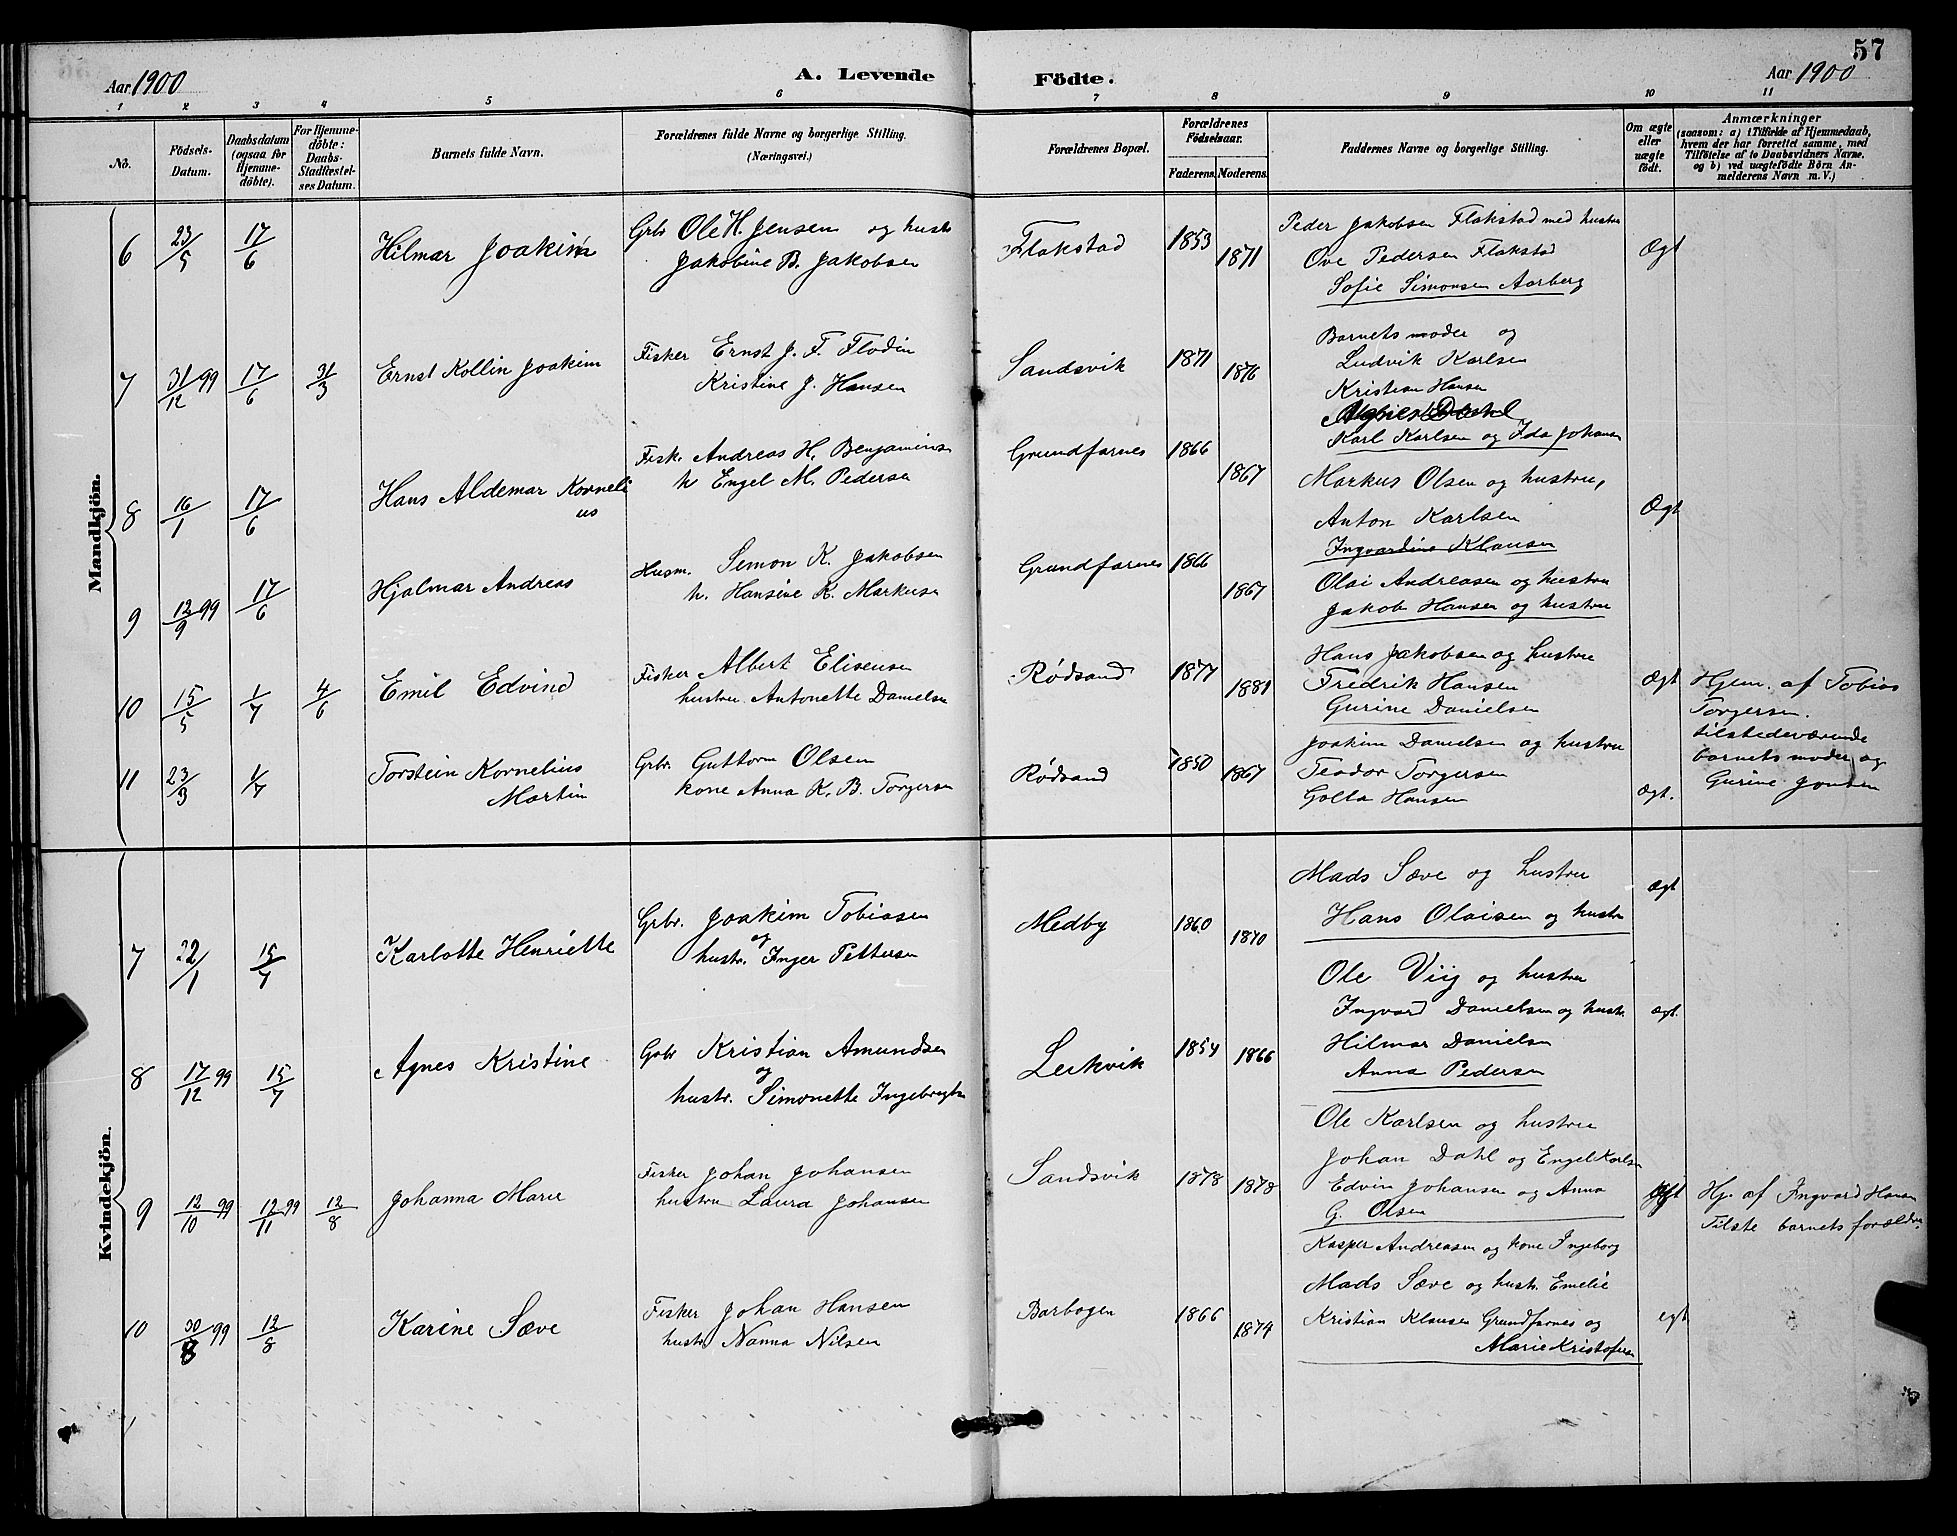 57
Aar 1900 A. Levende Födte. Aar 1900
1 2 3 4 5 6 7 8 9 10 11
No.
Födsels-Datum.
Daabsdatum (ogsaa for Hjemmedöbte).
For Hjemmedöbte: Daabs-Stadfæstelses Datum.
Barnets fulde Navn.
Forældrenes fulde Navne og borgerlige Stilling.
(Næringsvei.)
Forældrenes Bopæl.
Forældrenes Födselsaar.
Faderens. Moderens.
Faddernes Navne og borgerlige Stilling.
Om ægte eller uægte födt.
Anmærkninger
(saasom: a) i Tilfælde af Hjemmedaab,
hvem der har forrettet samme, med
Tilföielse af to Daabsvidners Navne,
og b) ved uægtefödte Börn An-
melderens Navn m. V.)
Mandkjön.
6 23/5 17/6 Hilmar Joakim
Grbr Ole H. Jensen og hustr
Jakobine B. Jakobsen
Flakstad 1853 1871
Peder Jakobsen Flakstad med hustru
Ove Pedersen Flakstad
Sofie Simonsen Aarberg
Ægt
7 31/12 99 17/6 31/3 Ernst Kollin Joakim
Fisker Ernst J. F. Flodin
Kristine J. Hansen
Sandsvik 1871 1876
Barnets moder og
Ludvik Karlsen
Kristian Hansen
Karl Karlsen og Ida Johansen
8 16/1 17/6 Hans Aldemar Korneli
us
Fisk. Andreas H. Benjaminsn
h. Engel M. Pedersen
Grundfarnes 1866 1867
Markus Olsen og hustru,
Anton Karlsen
Ingvardine Klausen
Ægt
9 12/9 99 17/6 Hjalmar Andreas
Husm. Simon K. Jakobsen
h. Hansine K. Markusn
Grundfarnes 1866 1867
Olai Andreasen og hustru
Jakob Hansen og hustru
10 15/5 1/7 4/6 Emil Edvind
Fisker Albert Elisensen
hustru Antonette Danielsn
Rødsand 1877 1881
Hans Jakobsen og hustru
Fredrik Hansen
Gurine Danielsen
Ægt
Hjem. af Tobias
Torgersen.
tilstedeværende
barnets moder og
Gurine Jonsen
11 23/3 1/7 Torstein Kornelius
Martin
Grbr. Guttorm Olsen
kone Anna K. B. Torgersen
Rødsand 1850 1867
Joakim Danielsen og hustru
Teodor Torgersen
Golla Hansen
Ægt.
Kvindekjön.
7 22/1 15/7 Karlotte Henriette
Grbr. Joakim Tobiasen
og
hustr. Inger Pettersen
Medby 1860 1870
Mads Sæve og hustru
Hans Olaisen og hustr
ægt
8 17/12 99 15/7 Agnes Kristine
Grbr Kristian Amundsen
og
hustr. Simonette Ingebrigtsn
Leikvik 1854 1866
Ole Viig og hustru
Ingvard Danielsen og hustr
Hilmar Danielsn
Anna Pedersen
ægt.
9 12/10 99 12/11 99 12/8 Johanna Marie
Fisker Johan Johansen
hustru Laura Johansn
Sandsvik 1878 1878
Ole Karlsen og hustru
Johan Dahl og Engel Karlsn
Edvin Johansen og Anna
G. Olsen
Ægt
Hj. af Ingvard Hansen
Tilste barnets forældre.
10 30/8 99 12/8 Karine Sæve
Fisker Johan Hansen
hustr Nanna Nilsen
Barbogen 1866 1874
Kasper Andreasen og kone Ingeborg
Mads Sæve og hustr. Emelie
Kristian Klausen Grundfarnes og
Marie Kristofersen
egt